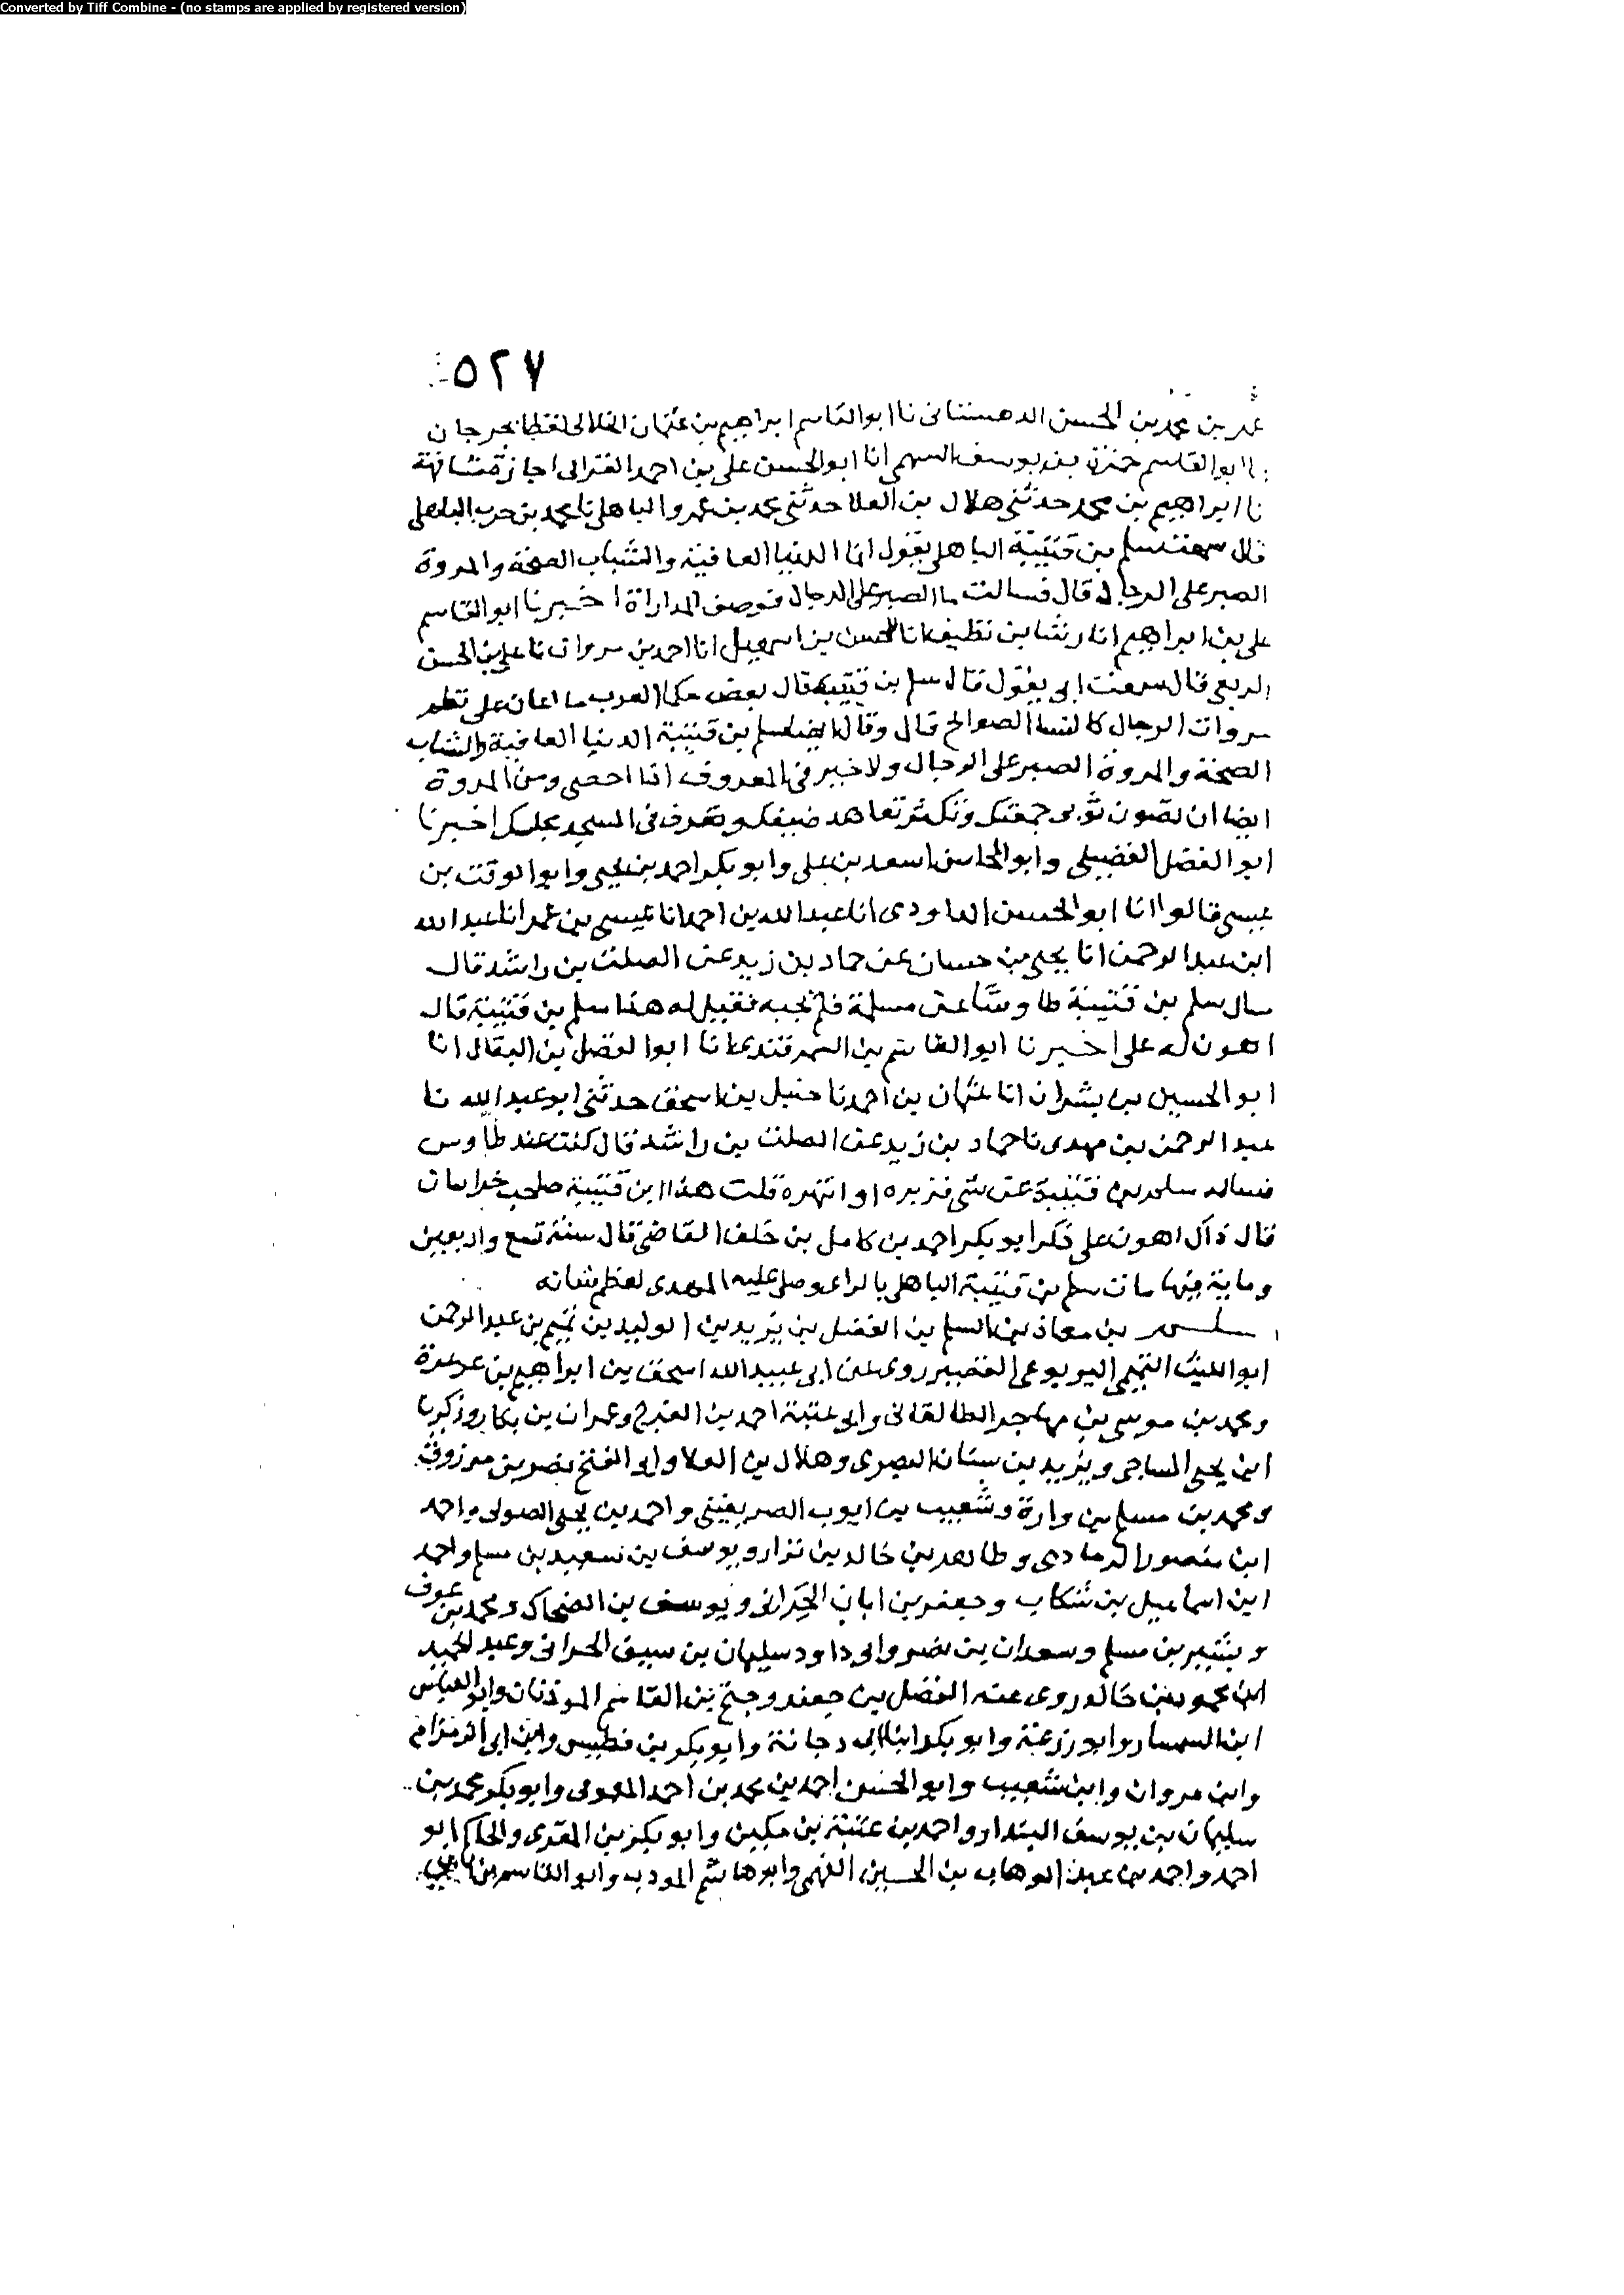 Converted by Tiff Combine - (no stamps are applied by registered version)
٥٢٧
عمر بن محمد بن الحسن الدهستانى نا ابوالقاسم ابراهيم بن عثمان الخلالى لفظا بجرجان
نا ابوالقاسم حمزة بن يوسف السهمى انا ابوالحسن على بن احمد الغزالى اجازة مشافهة
نا ابراهيم بن محمد حدثنى هلال بن العلا حدثنى محمد بن عمرو الباهلى نا محمد بن حرب الباهلى
قال سمعت سلم بن قتيبة الباهلى يقول انما الدنيا العافية والشباب الصحة والمروة
الصبر على الرجال قال فسالت ما الصبر على الرجال فوصف المداراة اخبرنا ابوالقاسم
على بن ابراهيم انا رشا بن نظيف انا الحسن بن اسمعيل انا احمد بن مروان نا على بن الحسن
الربعى قال سمعت ابى يقول قال سلم بن قتيبة قال بعض حكما العرب ما اعان على نظم
مروات الرجال كالنسا الصوالح قال وقال ايضا سلم بن قتيبة الدنيا العافية والشباب
الصحة والمروة الصبر على الرجال ولا خير فى المعروف اذا احصى ومن المروة
ايضا ان تصون ثوبى جمعتك وتكثر تعاهد ضيفك وتعرف فى المسجد مجلسك اخبرنا
ابو الفضل الفضيلى وابوالمحاسن اسعد بن على وابو بكر احمد بن يحيى وابو الوقت بن
عيسى قالوا انا ابوالحسن الداودى انا عبد الله بن احمد انا عيسى بن عمر انا عبد الله
ابن عبد الرحمن انا يحيى بن حسان عن حماد بن زيد عن الصلت بن راشد قال
سال سلم بن قتيبة طاوسًا عن مسلة فلم يجبه فقيل له هذا سلم بن قتيبة قال
اهون له على اخبرنا ابوالقاسم بن السمرقندى انا ابوالفضل بن البقال انا
ابو الحسين بن بشران انا عثمان بن احمد نا حنبل بن اسحق حدثنى ابو عبد الله نا
عبد الرحمن بن مهدى نا حماد بن زيد عن الصلت بن راشد قال كنت عند طاوس
فساله سلم بن قتيبة عن شى فزبره او انتهره قلت هذا ابن قتيبة صاحب خراسان
قال ذاك اهون على ذكر ابو بكر احمد بن كامل بن خلف القاضى قال سنة تسع واربعين
وماية فيها مات سلم بن قتيبة الباهلى بالرى وصلى عليه المهدى لعظم شانه
سلم بن معاذ بن السلم بن الفضل بن يزيد بن الوليد بن تميم بن عبد الرحمن
ابو الليث التميمى اليربوعى القصير روى عن ابى عبيد الله اسحق بن ابراهيم بن عرعرة
ومحمد بن موسى بن مهاجر الطالقانى وابى عتبة احمد بن الفرج وعمران بن بكار وزكريا
ابن يحيى الساجى ويزيد بن سنان البصرى وهلال بن العلا وابى الفتح نصر بن مرزوق
ومحمد بن مسلم بن وارة وشعيب بن ايوب الصريفينى واحمد بن يحيى الصوفى واحمد
ابن منصور الرمادى وطاهر بن خالد بن نزار ويوسف بن سعيد بن مسلم واحمد
ابن اسماعيل بن شكاب وجعفر بن ابان الحرانى ويوسف بن الضحاك ومحمد بن عوف
وبشير بن مسلم وسعدان بن نصر وابى داود سليمان بن سيف الحرانى وعبد الحميد
ابن محمود بن خالد روى عنه الفضل بن جعفر وجمح بن القاسم الموذنان وابو العباس
ابن السمسار وابو زرعة وابو بكر ابنا ابى دجانة وابو بكر بن فطيس وابن ابى الزمزام
وابن مروان وابن شعيب وابو الحسن احمد بن محمد بن احمد وابو بكر محمد بن
سليمان بن يوسف البندار واحمد بن عتبة بن مكين وابو بكر بن المقرى والحاكم ابو
احمد واحمد بن عبد الوهاب بن الحسين اللهبى وابو هاشم المودب وابو القاسم بن